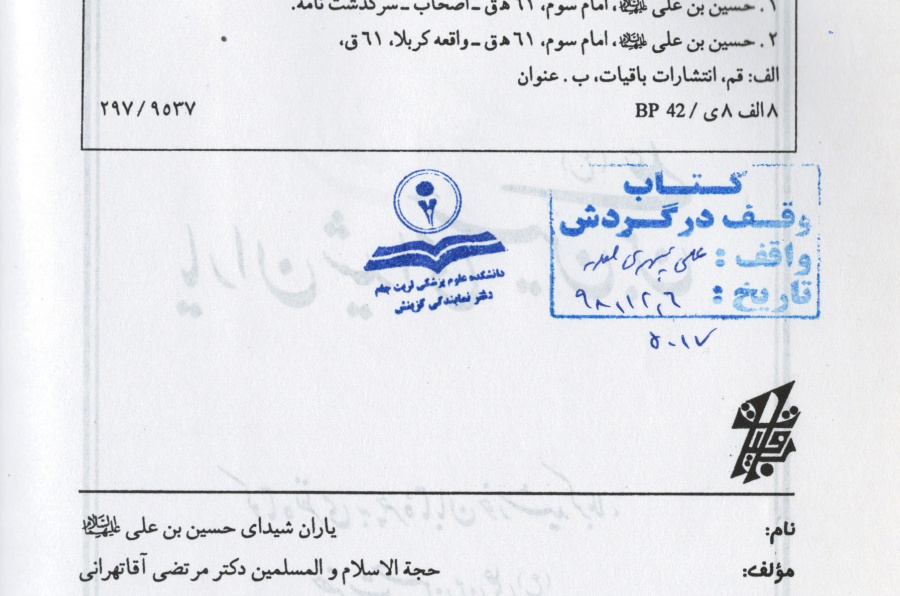 ۱. حسین بن علی علیه‌السلام، امام سوم، ۶۱ ه‍ ق ـ اصحاب ـ سرگذشت نامه.
۲. حسین بن علی علیه‌السلام، امام سوم، ۶۱ ه‍ ق ـ واقعه کربلا، ۶۱ ق،
الف: قم، انتشارات باقیات، ب. عنوان
۸ الف ۸ ی / BP 42
۲۹۷/۹۵۳۷
کتاب
وقف در گردش
واقف: علی
تاریخ: ۹۸/۱۲/۶
۵۰۱۷
دانشکده علوم پزشکی تربت جام
دفتر نمایندگی گزینش
باقیات
نام: یاران شیدای حسین بن علی علیه‌السلام
مؤلف: حجة الاسلام و المسلمین دکتر مرتضی آقاتهرانی